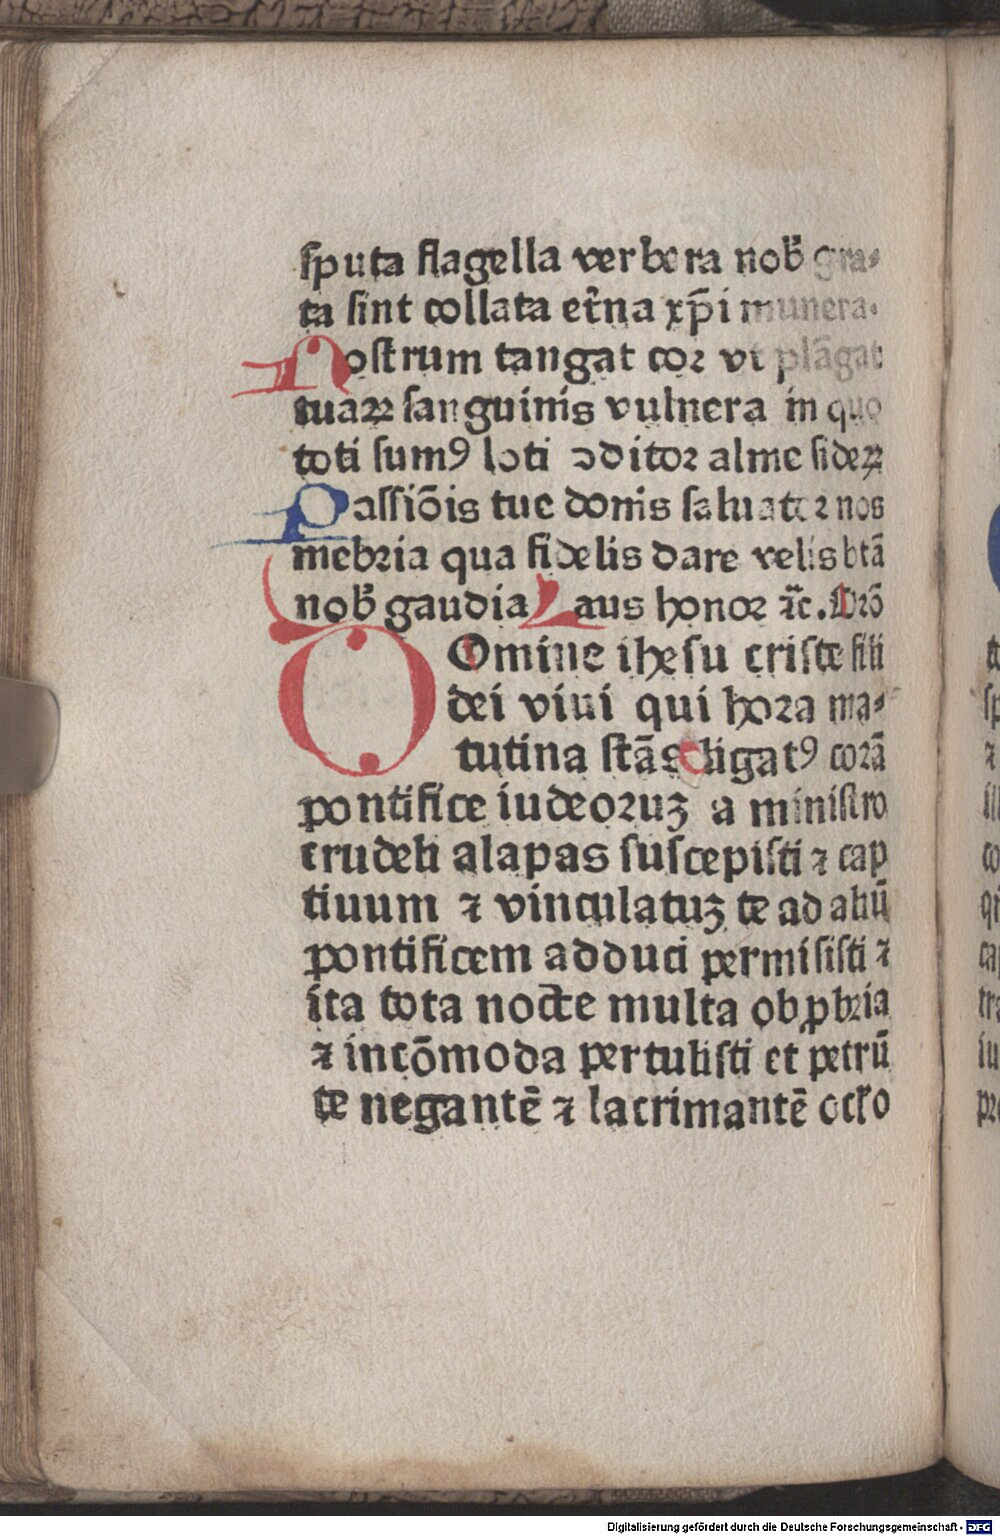 sputa flagella verbera nob̄ gra⸗
ta sint collata et̄na xp̄i munera.
Nostrum tangat cor vt plāgat
tuaꝝ sanguinis vulnera in quo
toti sumꝰ loti ↄditor alme sideꝝ
Passiōis tue donis saluator nos
inebria qua fidelis dare velis btā
nob̄ gaudia Laus honor ⁊c̄. Orō
Omine ihesu criste fili
dei viui qui hora ma⸗
tutina stās ligatꝰ corā
pontifice iudeoruꝫ a ministro
crudeli alapas suscepisti ⁊ cap
tiuum ⁊ vinculatuꝫ te ad aliū
pontificem adduci permisisti ⁊
ita tota nocte multa obꝓbria
⁊ incōmoda pertulisti et petrū
te negantē ⁊ lacrimantē
Digitalisierung gefördert durch die Deutsche Forschungsgemeinschaft - DFG